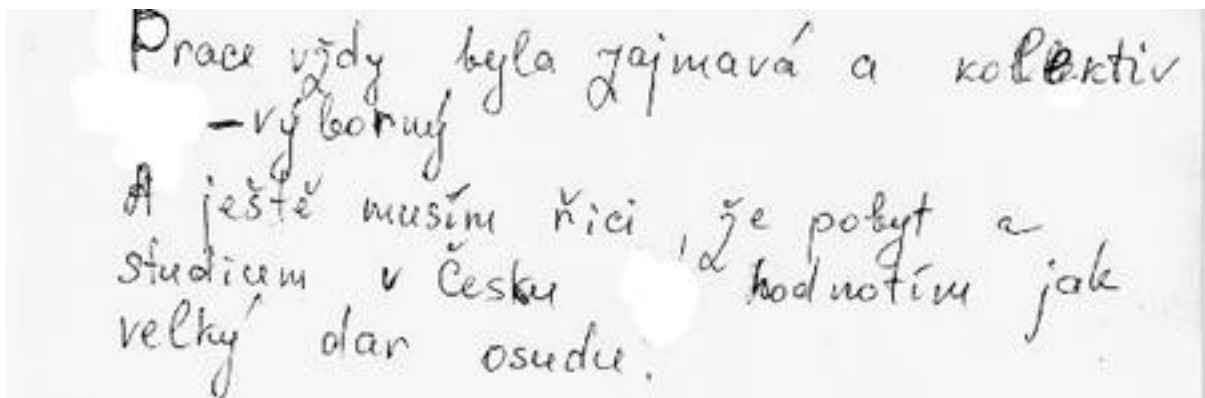 Prace vždy byla zajmavá a kolektiv
- výborný
A ještě musím řici, že pobyt a
studium v Česku hodnotím jak
velký dar osudu.